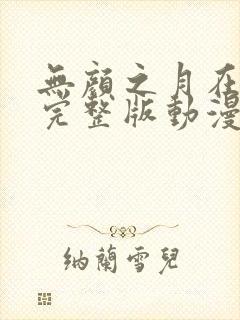 無顏之月在
完整版動漫
納蘭雪兒